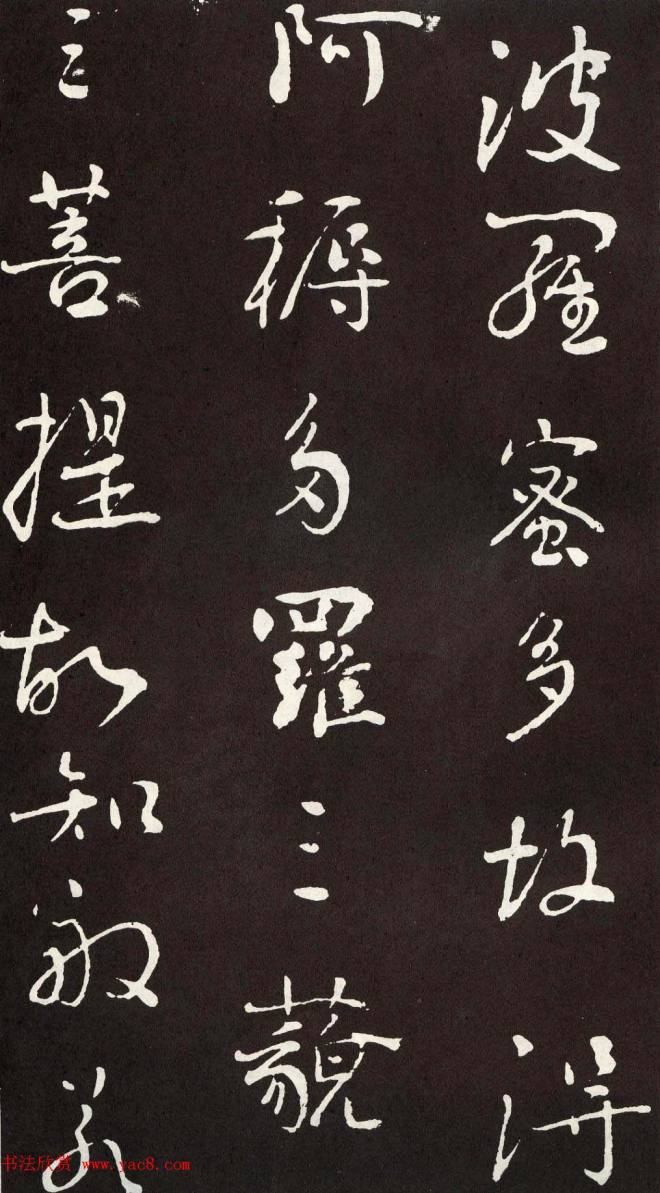 波羅蜜多故得
阿耨多羅三藐
三菩提故知般若
书法欣赏 www.yac8.com